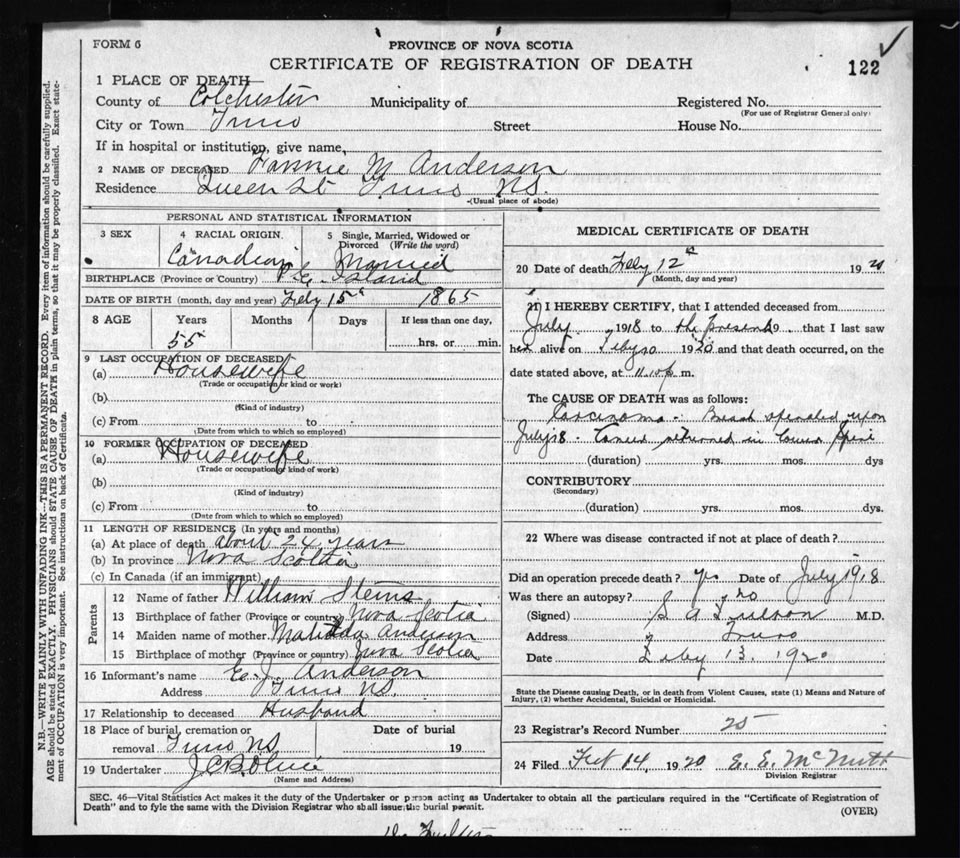 FORM 6
PROVINCE OF NOVA SCOTIA
CERTIFICATE OF REGISTRATION OF DEATH
122
1 PLACE OF DEATH
County of Colchester Municipality of Registered No.
(For use of Registrar General only)
City or Town Truro Street House No.
If in hospital or institution, give name,
2 NAME OF DECEASED Fannie M Anderson
Residence Queen St Truro NS.
(Usual place of abode)
PERSONAL AND STATISTICAL INFORMATION
3 SEX 4 RACIAL ORIGIN. 5 Single, Married, Widowed or Divorced (Write the word)
Canadian Married
BIRTHPLACE (Province or Country) P.E. Island
DATE OF BIRTH (month, day and year) Feby 15th 1865
8 AGE Years Months Days If less than one day,
55 hrs. or min.
9 LAST OCCUPATION OF DECEASED
(a) Housewife
(Trade or occupation or kind or work)
(b)
(Kind of industry)
(c) From to
(Date from which to which so employed)
10 FORMER OCCUPATION OF DECEASED
(a) Housewife
(Trade or occupation or kind of work)
(b)
(Kind of industry)
(c) From to
(Date from which to which so employed)
11 LENGTH OF RESIDENCE (In years and months)
(a) At place of death about 24 years
(b) In province Nova Scotia
(c) In Canada (if an immigrant)
Parents
12 Name of father William Sterns
13 Birthplace of father (Province or country) Nova Scotia
14 Maiden name of mother Matilda Anderson
15 Birthplace of mother (Province or country) Nova Scotia
16 Informant's name E. J. Anderson
Address Truro NS.
17 Relationship to deceased Husband
18 Place of burial, cremation or Date of burial
removal Truro NS 19
19 Undertaker J.C.B.
(Name and Address)
MEDICAL CERTIFICATE OF DEATH
20 Date of death Feby 12th 1920
(Month, day and year)
21 I HEREBY CERTIFY, that I attended deceased from
July 1918 to the Present 19 that I last saw
her alive on Feby 1920 and that death occurred, on the
date stated above, at m.
The CAUSE OF DEATH was as follows:
Carcinoma - Breast operated upon
July 18. returned in Spine
(duration) yrs. mos. dys
CONTRIBUTORY
(Secondary)
(duration) yrs. mos. dys.
22 Where was disease contracted if not at place of death?
Did an operation precede death? yes Date of July 1918
Was there an autopsy? no
(Signed) S A M.D.
Address Truro
Date Feby 13. 1920
State the Disease causing Death, or in death from Violent Causes, state (1) Means and Nature of
Injury, (2) whether Accidental, Suicidal or Homicidal.
23 Registrar's Record Number 25
24 Filed Feb 14, 1920 E. E. McNutt
Division Registrar
SEC. 46—Vital Statistics Act makes it the duty of the Undertaker or person acting as Undertaker to obtain all the particulars required in the "Certificate of Registration of
Death" and to fyle the same with the Division Registrar who shall issue the burial permit. (OVER)
N.B.—WRITE PLAINLY WITH UNFADING INK—THIS IS A PERMANENT RECORD. Every item of information should be carefully supplied.
AGE should be stated EXACTLY. PHYSICIANS should STATE CAUSE OF DEATH in plain terms, so that it may be properly classified. Exact state-
ment of OCCUPATION is very important. See instructions on back of Certificate.